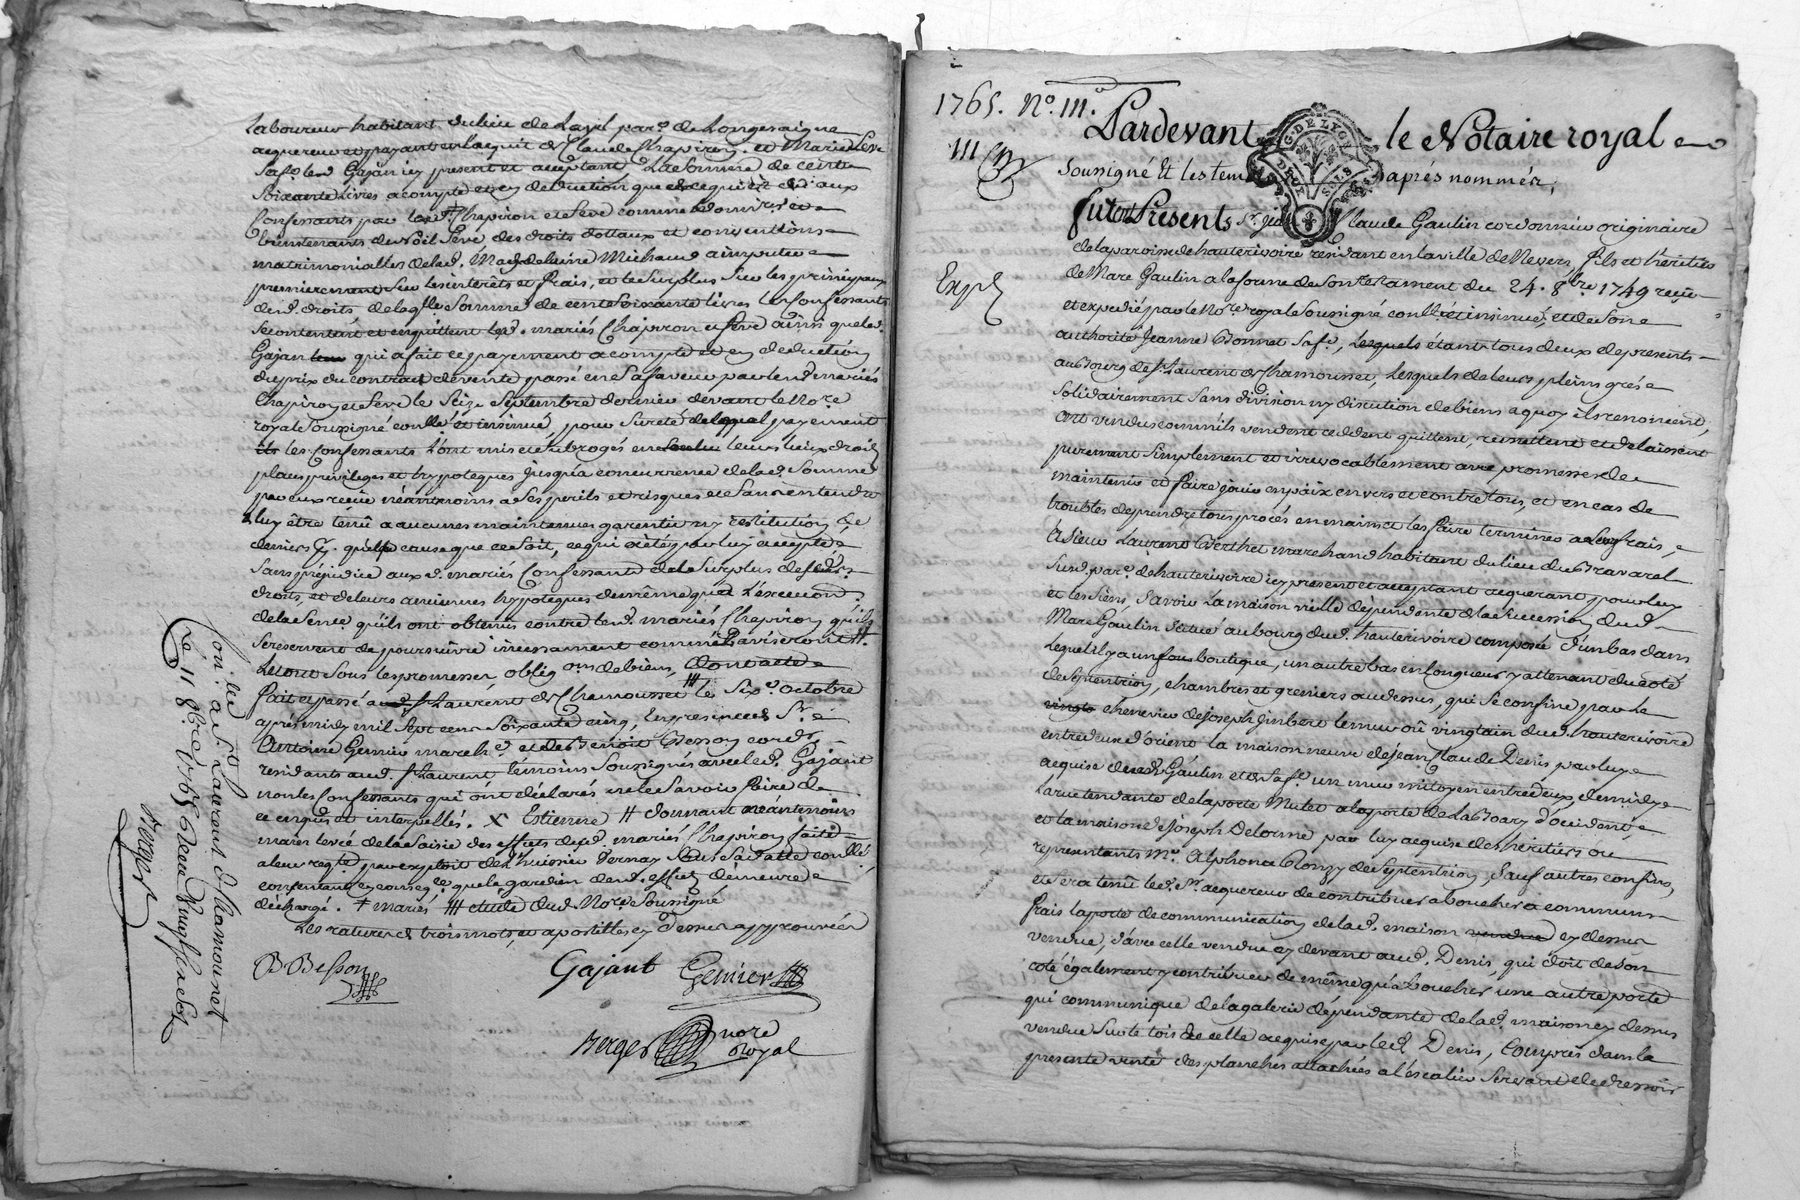 Laboureur habitant du lieu de Layel par.e de Longesaigne
acquereur et payant en l'acquit de Claude Chapiron et Marie Seve
sa f.e led. Gajan icy present et acceptant La somme de cent
soixante livres acompte et en deduction que
Confessants par Chapiron et Seve comme
de Noël Seve, des droits dottaux et conventions
matrimonialles de lad. Magdelaine Michaud a imputer
premierement sur les interêts et frais, et le surplus sur les principaux
desd. droits, de laq.lle somme de cent soixante livres les Confessants
se contentent et en quittent lesd. mariés Chapiron et Seve ainsi que led.
Gajan qui a fait ce payement acompte et en deduction
du prix du contract de vente passé en sa faveur par lesd. mariés
Chapiron et Seve le Seize Septembre dernier devant le No.re
royal soussigné conllé et insinué, pour sureté delaquel payement
ils les Confessants l'ont mis et subrogés en leurs lieux droits
places privileges et hypoteques jusqu'a concurrence de lad. somme
par eux reçüe néantmoins a ses perils et risques et sans entendre
luy être tenû a aucunes maintenues garentie ny restitution de
deniers p.r quelq cause que ce soit, ce qui a été par luy accepté
sans préjudice auxd. mariés Confessants de la surplus de
droits, et de leurs anciennes hypoteques de même que de L'execution
de la Sent.e qu'ils ont obtenus contre lesd. mariés Chapiron qu'ils
se reservent de poursuivre incessament comme ils aviseront #.
Le tout sous les promesses, oblig.ons de biens, dont acte
fait et passé aud. S.t Laurent de Chamousset le Six.e octobre
apres midy mil sept cent soixante cinq, En presence de S.r
Antoine Genier march.d et de Benoit Besson cord.r
residants aud. S.t Laurent témoins soussignés avec led. Gajant
non les Confessants qui ont déclarés ne le savoir faire de
ce enquis et interpellés. X Estienne # donnant néantmoins
main levée de la Saisie des effets desd. mariés Chapiron faite
a leur req.te par exploit de L'huissier Pernay conllé,
consentent en conseq.ce que le gardien desd. effets demeure
déchargé. + mariés ### etude dud. No.re Soussigné
Les ratures de trois mots, et apostilles cy dessus approuvées
B Besson Gajant Genier
Berger nore
Royal
Con.llé a S.t Laurent d Chamousset
Le 11 8bre 1765
Berger
1765. N.o 111.
111
Expé
Pardevant le Notaire royal
Soussigné & les tem après nommés,
G. DE LYON
DEUX SOLS
furent Presents S.r Jean Claude Gaulin cordonnier originaire
de la paroisse de hauterivoire residant en la ville de Nevers, fils et heritier
de Marc Gaulin a la forme de son testament du 24. 8bre 1749 reçu
et expedié par le No.re royal Soussigné conllé et insinué, et de son
authorité Jeanne Bonnet sa f.e, Lesquels étant tous deux de presents
au Bourg de S.t Laurent de Chamousset, Lesquels de leurs pleins gré
solidairement sans division ny discution de biens a quoy ils renoncent,
ont vendus comm'ils vendent cedent quittent, remettent et delaissent
purement simplement et irrevocablement avec promesses de
maintenir et faire jouir en paix envers et contre tous, et en cas de
troubles de prendre tous procés en mains et les faire terminer a leurs frais,
A Sieur Laurent Berthet marchand habitant du lieu du Bravarel
sur d. par.e de hauterivoire icy present et acceptant acquerant pour luy
et les siens, Savoir La maison vieille dépendante de la succession dud.
Marc Gaulin située au bourg dud. hauterivoire composée d'un bas dans
lequel il y a un four boutique, un autre bas en longueur y attenant du coté
de septentrion, chambres et greniers au dessus, qui se confine par le
vingts chenevier de joseph Jinbert le mur oû vingtain dud. hauterivoire
entre deux d'orient la maison neuve de jean Claude Denis par luy
acquise dud. Gaulin et de sa f.e un mur mitoyen entre deux, de midy
La rue tendante de la porte Mulet a la porte de d'occident
et la maison de joseph Delorme par luy acquise des heritiers ou
representants M.e Alphonce Clonzy de septentrion, sauf autres confins,
et sera tenû led. S.r acquereur de contribuer a boucher a communs
frais la porte de communication de lad. maison vendue cy dessus
vendue, d'avec celle vendue cy devant aud. Denis, qui doit de son
coté également y contribuer de même qu'a boucher une autre porte
qui communique de la galerie dépendante de lad. maison cy dessus
vendue sur le tois de celle acquise par led. Denis, Compris dans la
presente vente des planches attachées a l'escalier servant de dressoir